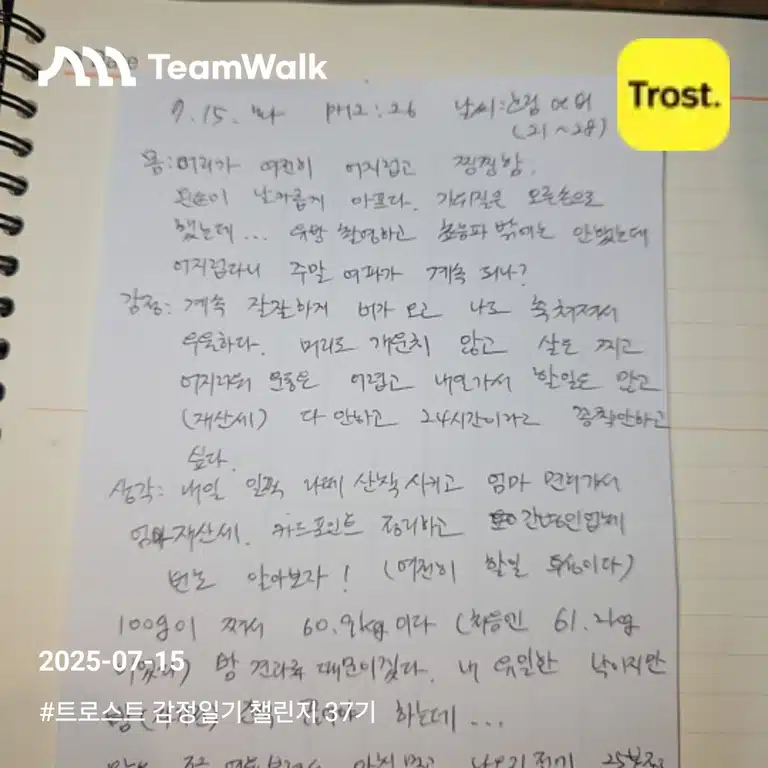 TeamWalk
Trost.
7.15. PM2:26 날씨:흐림
(21~28)
몸:머리가 여전히 어지럽고 찡찡함.
왼손이 날카롭게 아프다. 가위질은 오른손으로
했는데... 유방 촬영하고 초음파 밖에는 안했는데
어지럽다니 주말 여파가 계속 되나?
감정: 계속 잘잘하게 비가 오고 나도 축 쳐져서
우울하다. 머리도 개운치 않고 살도 찌고
어지러워 운동은 어렵고 내일가서 할일도 많고
(재산세) 다 안하고 24시간이라고 꼼짝안하고
싶다.
생각: 내일 일찍 산책 시키고 엄마 면회가서
재산세. 카드포인트 정리하고
번호 알아보자! (여전히 할일 이다)
100g이 쪄서 60.9kg이다 (처음엔 61.2kg
2025-07-15
이었다) 빵 견과류 때문이겠다. 내 유일한 낙이지만
#트로스트 감정일기 챌린지 37기
하는데...